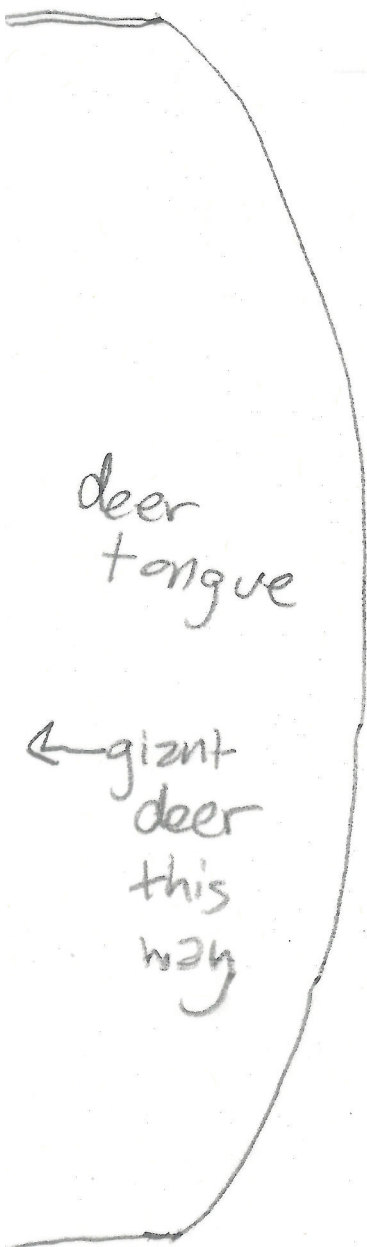 deer
tongue
← giant
deer
this
way